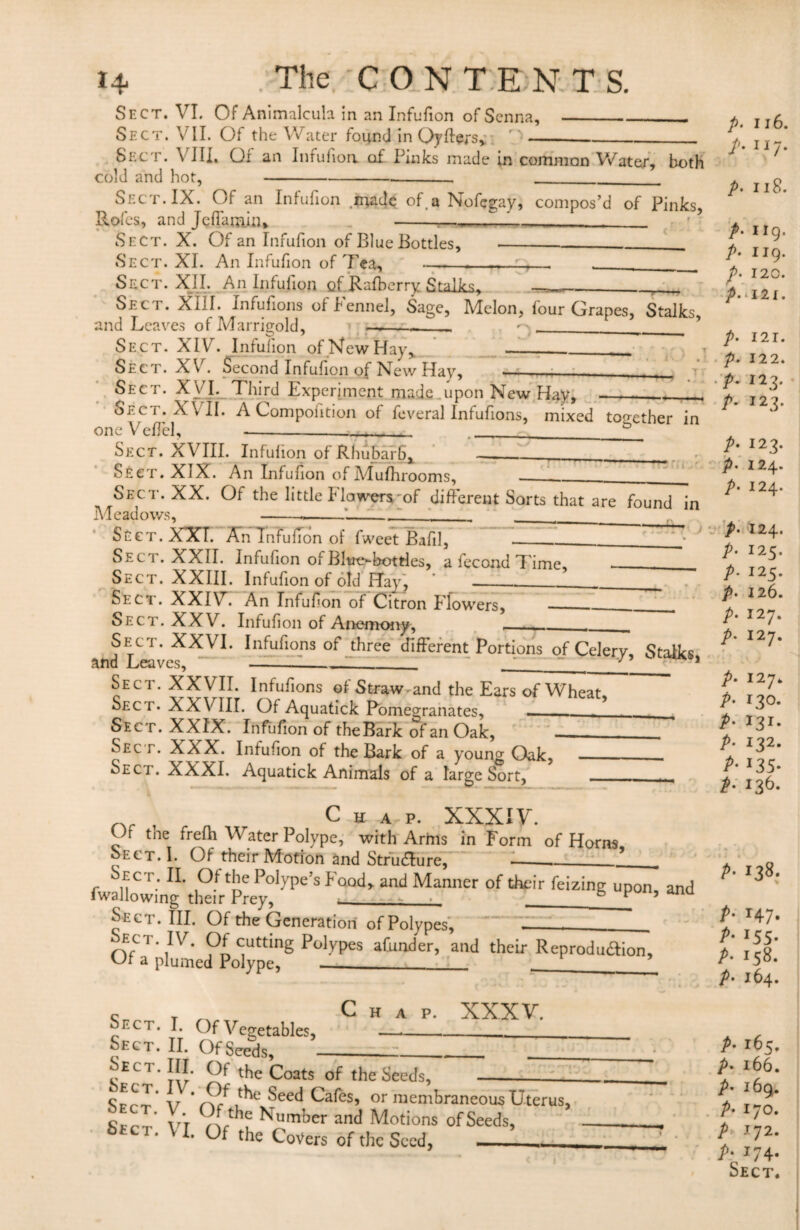 14 The CONTENTS.
Sect. VI. Of Animalcula in an Infuſion of Senna, p. 116.
Sect. VII. Of the Water found in Oyſters, p. 117.
Sect. VIII. Of an Infuſion of Pinks made in common Water, both
cold and hot, p. 118.
Sect. IX. Of an Infuſion made of a Noſegay, compos'd of Pinks,
Roſes, and Jeſſamin, p. 119.
Sect. X. Of an Infuſion of Blue Bottles, p. 119.
Sect. XI. An Infuſion of Tea, p. 120.
Sect. XII. An Infuſion of Raſberry Stalks, p. 121.
Sect. XIII. Infuſions of Fennel, Sage, Melon, ſour Grapes, Stalks,
and Leaves of Marrigold, p. 121.
Sect. XIV. Infuſion of New Hay, p. 122.
Sect. XV. Second Infuſion of New Hay, p. 123.
Sect. XVI. Third Experiment made upon New Hay, p. 123.
Sect. XVII. A Compoſition of ſeveral Infuſions, mixed together in
one Veſſel, p. 123.
Sect. XVIII. Infuſion of Rhubarb, p. 124.
Sect. XIX. An Infuſion of Muſhrooms, p. 124.
Sect. XX. Of the little Flowers of different Sorts that are found in
Meadows, p. 124.
Sect. XXI. An Infuſion of ſweet Baſil, p. 125.
Sect. XXII. Infuſion of Blue-bottles, a ſecond Time, p. 125.
Sect. XXIII. Infuſion of old Hay, p. 126.
Sect. XXIV. An Infuſion of Citron Flowers, p. 127.
Sect. XXV. Infuſion of Anemony, p. 127.
Sect. XXVI. Infuſions of three different Portions of Celery, Stalks,
and Leaves, p. 127.
Sect. XXVII. Infuſions of Straw and the Ears of Wheat, p. 130.
Sect. XXVIII. Of Aquatick Pomegranates, p. 131.
Sect. XXIX. Infuſion of the Bark of an Oak, p. 132.
Sect. XXX. Infuſion of the Bark of a young Oak, p. 135.
Sect. XXXI. Aquatick Animals of a large Sort, p. 136.
Chap. XXXIV.
Of the freſh Water Polype, with Arms in Form of Horns,
Sect. I. Of their Motion and Structure, p. 138.
Sect. II. Of the Polype's Food, and Manner of their ſeizing upon, and
ſwallowing their Prey, p. 147.
Sect. III. Of the Generation of Polypes, p. 155.
Sect. IV. Of cutting Polypes aſunder, and their Reproduction, p. 158.
Of a plumed Polype, p. 164.
Chap. XXXV.
Sect. I. Of Vegetables, p. 165.
Sect. II. Of Seeds, p. 166.
Sect. III. Of the Coats of the Seeds, p. 169.
Sect. IV. Of the Seed Caſes, or membraneous Uterus, p. 170.
Sect. V. Of the Number and Motions of Seeds, p. 172.
Sect. VI. Of the Covers of the Seed, p. 174.
Sect.